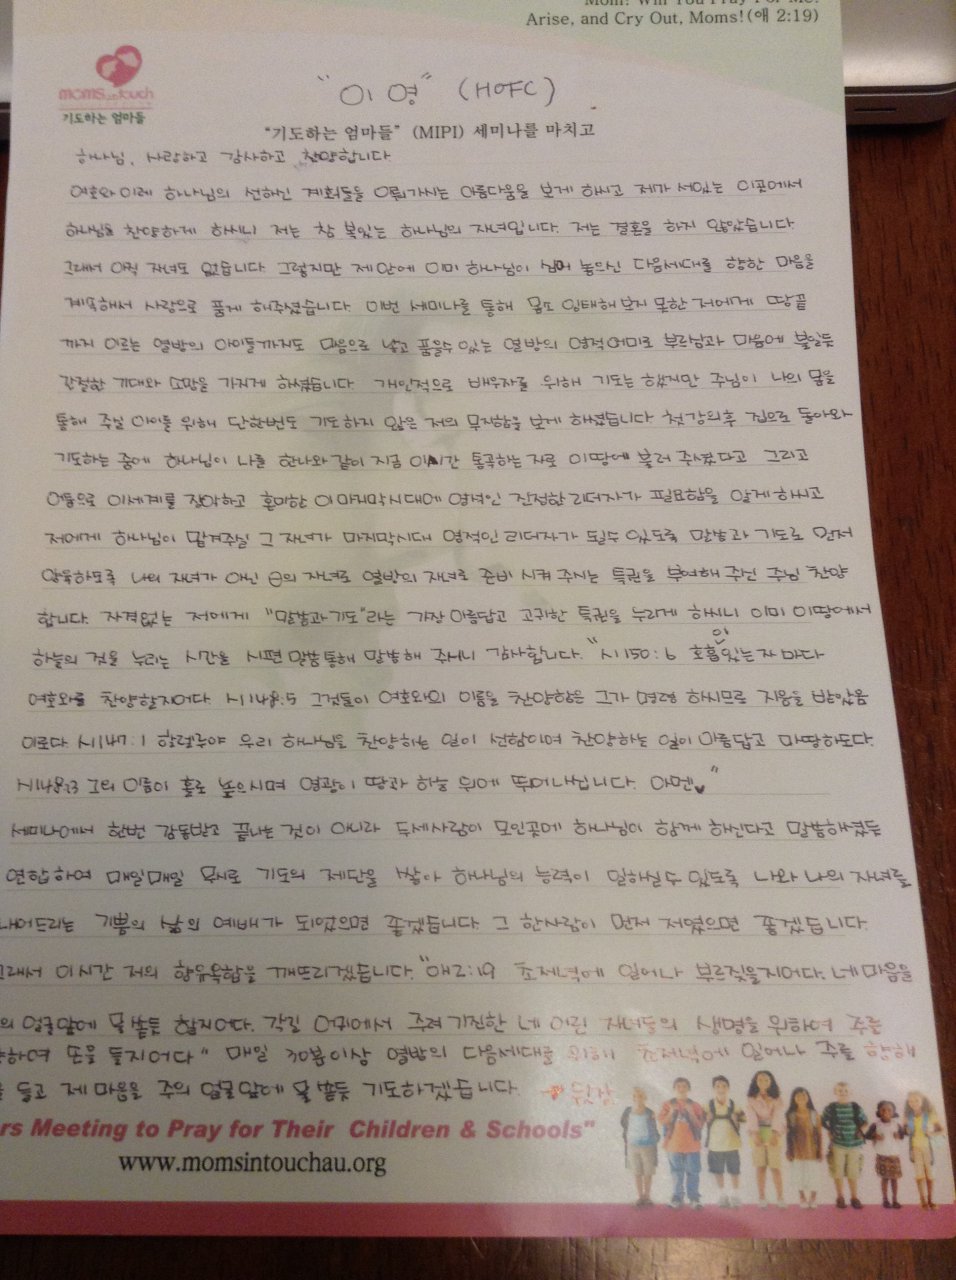 Mom! Will You Pray For Me?
Arise, and Cry Out, Moms!(애 2:19)
MOMS in touch
기도하는 엄마들
"이 영" (HOFC)
"기도하는 엄마들" (MIPI) 세미나를 마치고
하나님, 사랑하고 감사하고 찬양합니다.
여호와 이레 하나님의 선하신 계획들을 이뤄가시는 아름다움을 보게 하시고 제가 서있는 이곳에서
하나님을 찬양하게 하시니 저는 참 복있는 하나님의 자녀입니다. 저는 결혼을 하지 않았습니다
그래서 아직 자녀도 없습니다. 그렇지만 제안에 이미 하나님이 심어 놓으신 다음세대를 향한 마음을
계속해서 사랑으로 품게 해주셨습니다. 이번 세미나를 통해 몸소 잉태해 보지 못한 저에게 땅끝
까지 이르는 열방의 아이들까지도 마음으로 낳고 품을수 있는 열방의 영적어미로 부라님과 마음에 불일듯
간절한 기대와 소망을 가지게 하셨습니다. 개인적으로 배우자를 위해 기도는 했지만 주님이 나의 몸을
통해 주실 아이를 위해 단한번도 기도하지 않은 저의 무지함을 보게 하셨습니다. 첫강의후 집으로 돌아와
기도하는 중에 하나님이 나를 한나와 같이 지금 이시간 통곡하는 자로 이땅에 불러 주셨다고 그리고
어둠으로 이세계를 장악하고 혼미한 이 마지막시대에 영적인 진정한 리더자가 필요함을 알게 하시고
저에게 하나님이 맡겨주실 그 자녀가 마지막시대 영적인 리더자가 될수 있도록 말씀과 기도로 먼저
양육하도록 나의 자녀가 아닌 주의 자녀로 열방의 자녀로 준비 시켜 주시는 특권을 부여해 주신 주님 찬양
합니다. 자격없는 저에게 "말씀과 기도"라는 가장 아름답고 고귀한 특권을 누리게 하시니 이미 이땅에서
하늘의 것을 누리는 시간을 시편 말씀통해 말씀해 주시니 감사합니다. "시150:6 호흡이 있는 자마다
여호와를 찬양할지어다. 시148:5 그것들이 여호와의 이름을 찬양함은 그가 명령 하시므로 지음을 받았음
이로다. 시147:1 할렐루야 우리 하나님을 찬양하는 일이 선함이여 찬양하는 일이 아름답고 마땅하도다.
시148:13 그의 이름이 홀로 높으시며 영광이 땅과 하늘 위에 뛰어나십니다. 아멘"
세미나에서 한번 감동받고 끝나는 것이 아니라 두세사람이 모인곳에 하나님이 함께 하신다고 말씀하셨듯
연합하여 매일매일 무시로 기도의 제단을 쌓아 하나님의 능력이 일하실수 있도록 나와 나의 자녀를
내어드리는 기쁨의 삶의 예배가 되었으면 좋겠습니다. 그 한사람이 먼저 저였으면 좋겠습니다.
그래서 이시간 저의 향유옥합을 깨뜨리겠습니다. "애2:19 초저녁에 일어나 부르짖을지어다. 네 마음을
의 얼굴앞에 물 쏟듯 할지어다. 각길 어귀에서 주려 기진한 네 어린 자녀들의 생명을 위하여 주를
향하여 손을 들지어다" 매일 30분이상 열방의 다음세대를 위해 초저녁에 일어나 주를 향해
을 들고 제 마음을 주의 얼굴앞에 물 쏟듯 기도하겠습니다.
rs Meeting to Pray for Their Children & Schools"
www.momsintouchau.org